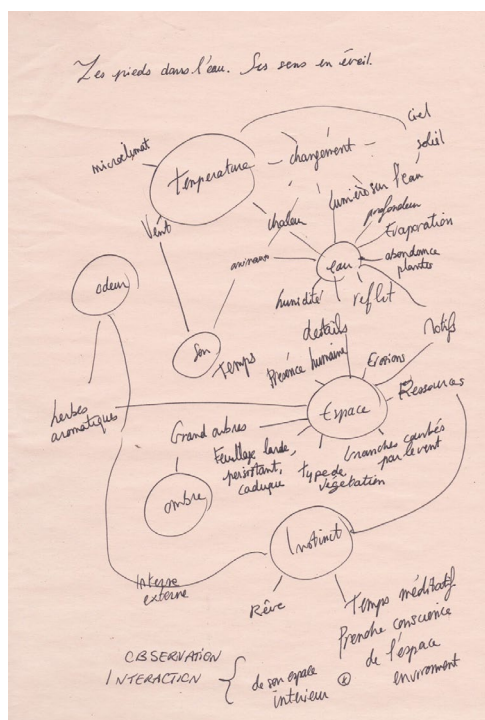 Les pieds dans l'eau. Ses sens en éveil.
ciel
soleil
microclimat
Température
changement
lumière sur l'eau
profondeur
Vent
chaleur
Evaporation
animaux
eau
abondance
plantes
odeur
humidité
reflet
détails
Motifs
Son
Temps
Présence humaine
Erosions
Ressources
herbes
aromatiques
Espace
Grand arbres
Feuillage large,
persistant,
caduque
type de
vegetation
branches courbés
par le vent
ombre
Instinct
Interne
externe
Rêve
Temps méditatif
Prendre conscience
de l'espace
environment
OBSERVATION
INTERACTION
de son espace
intérieur